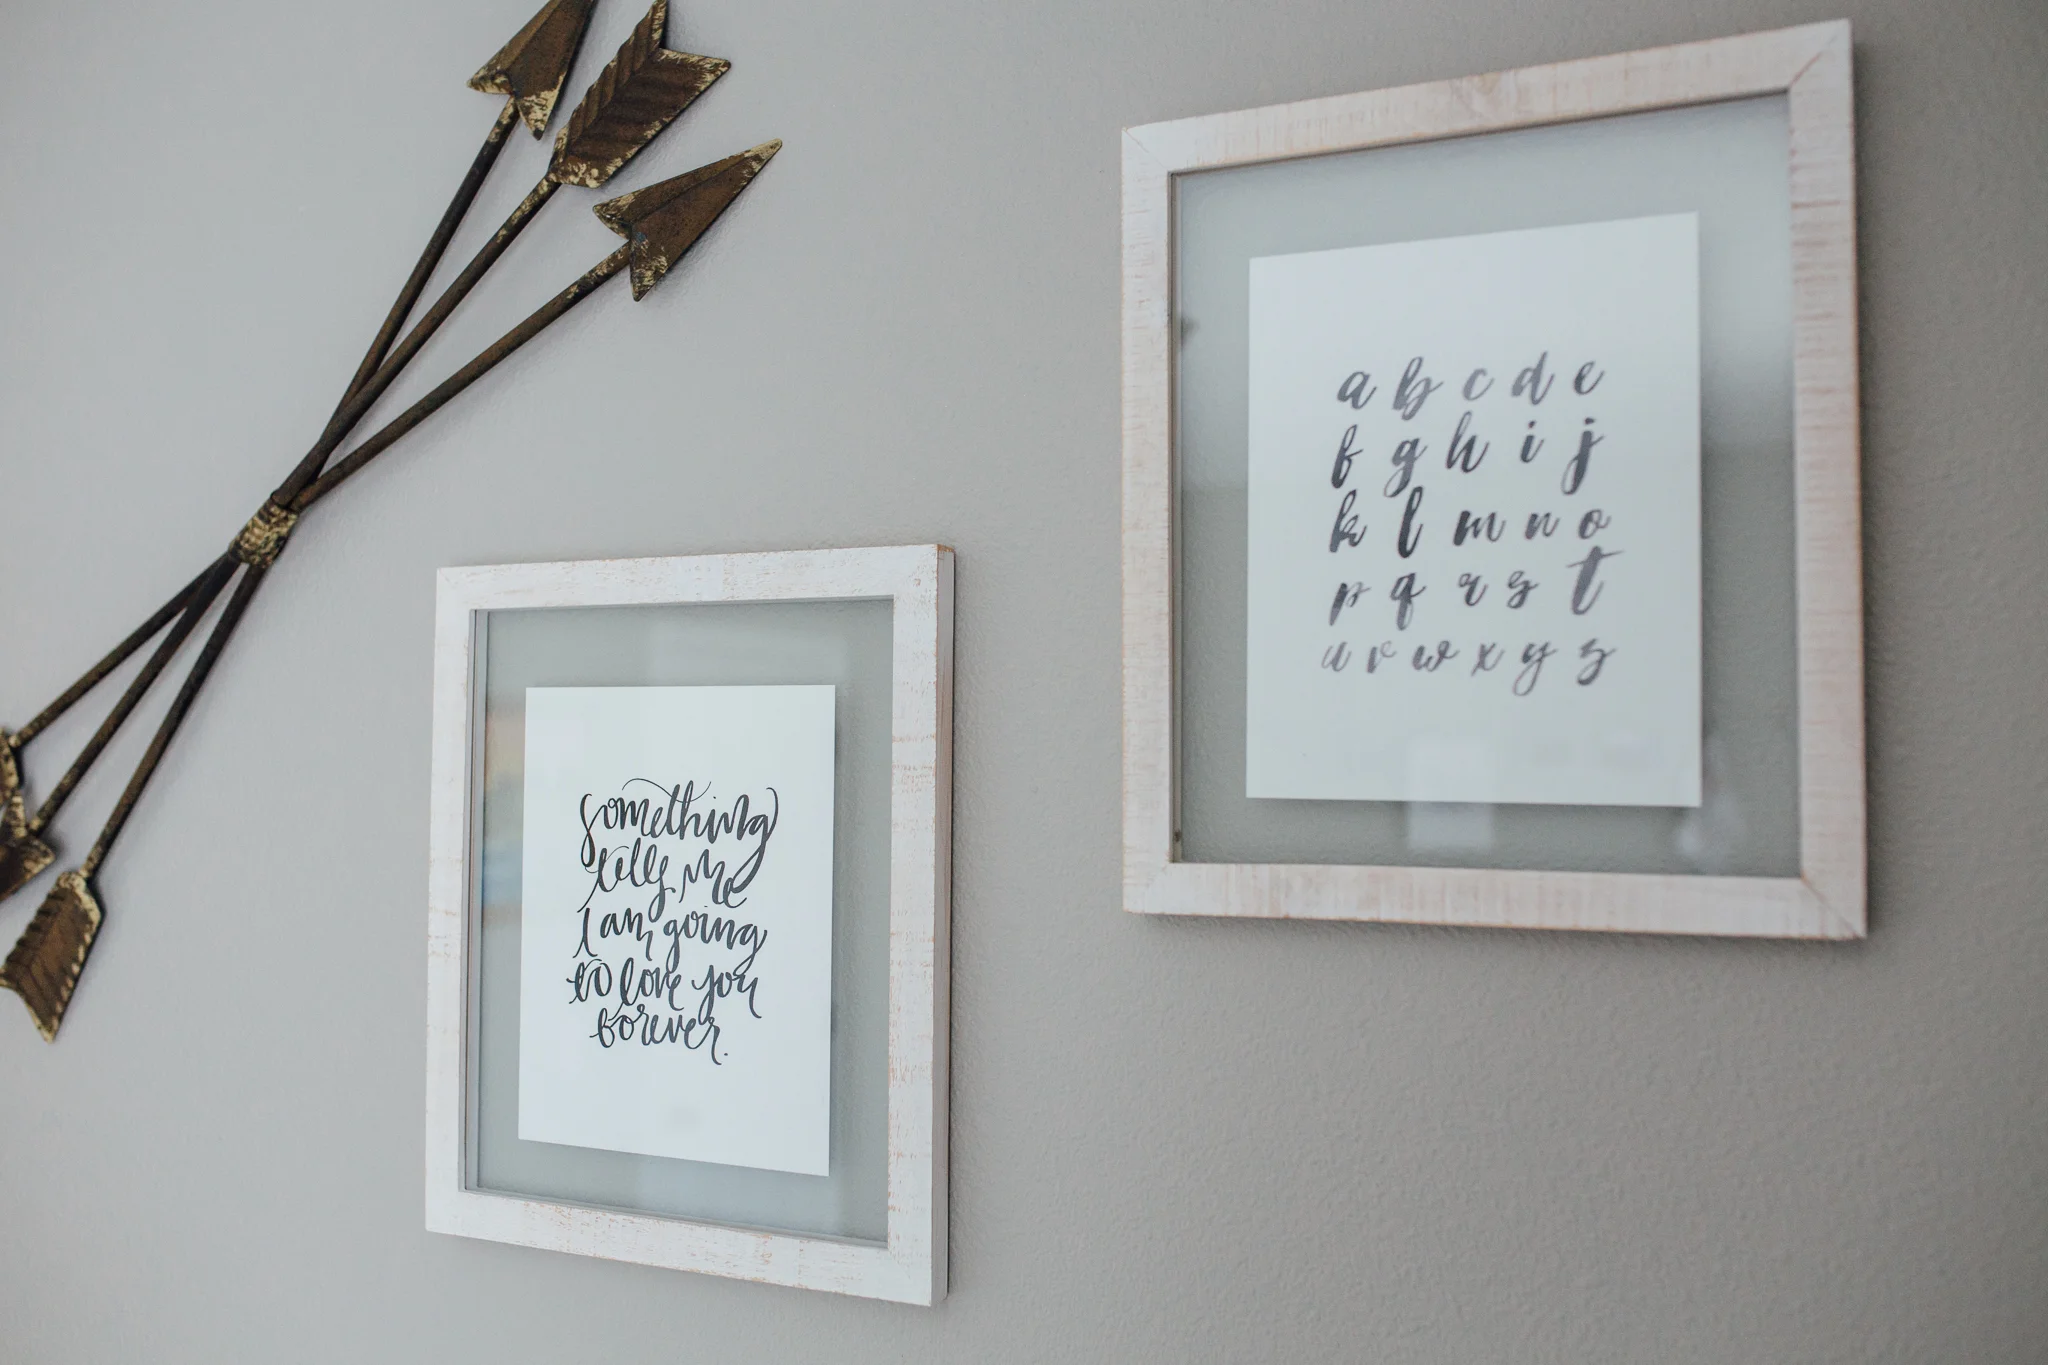 something
tells me
I am going
to love you
forever.
a b c d e
f g h i j
k l m n o
p q r s t
u v w x y z